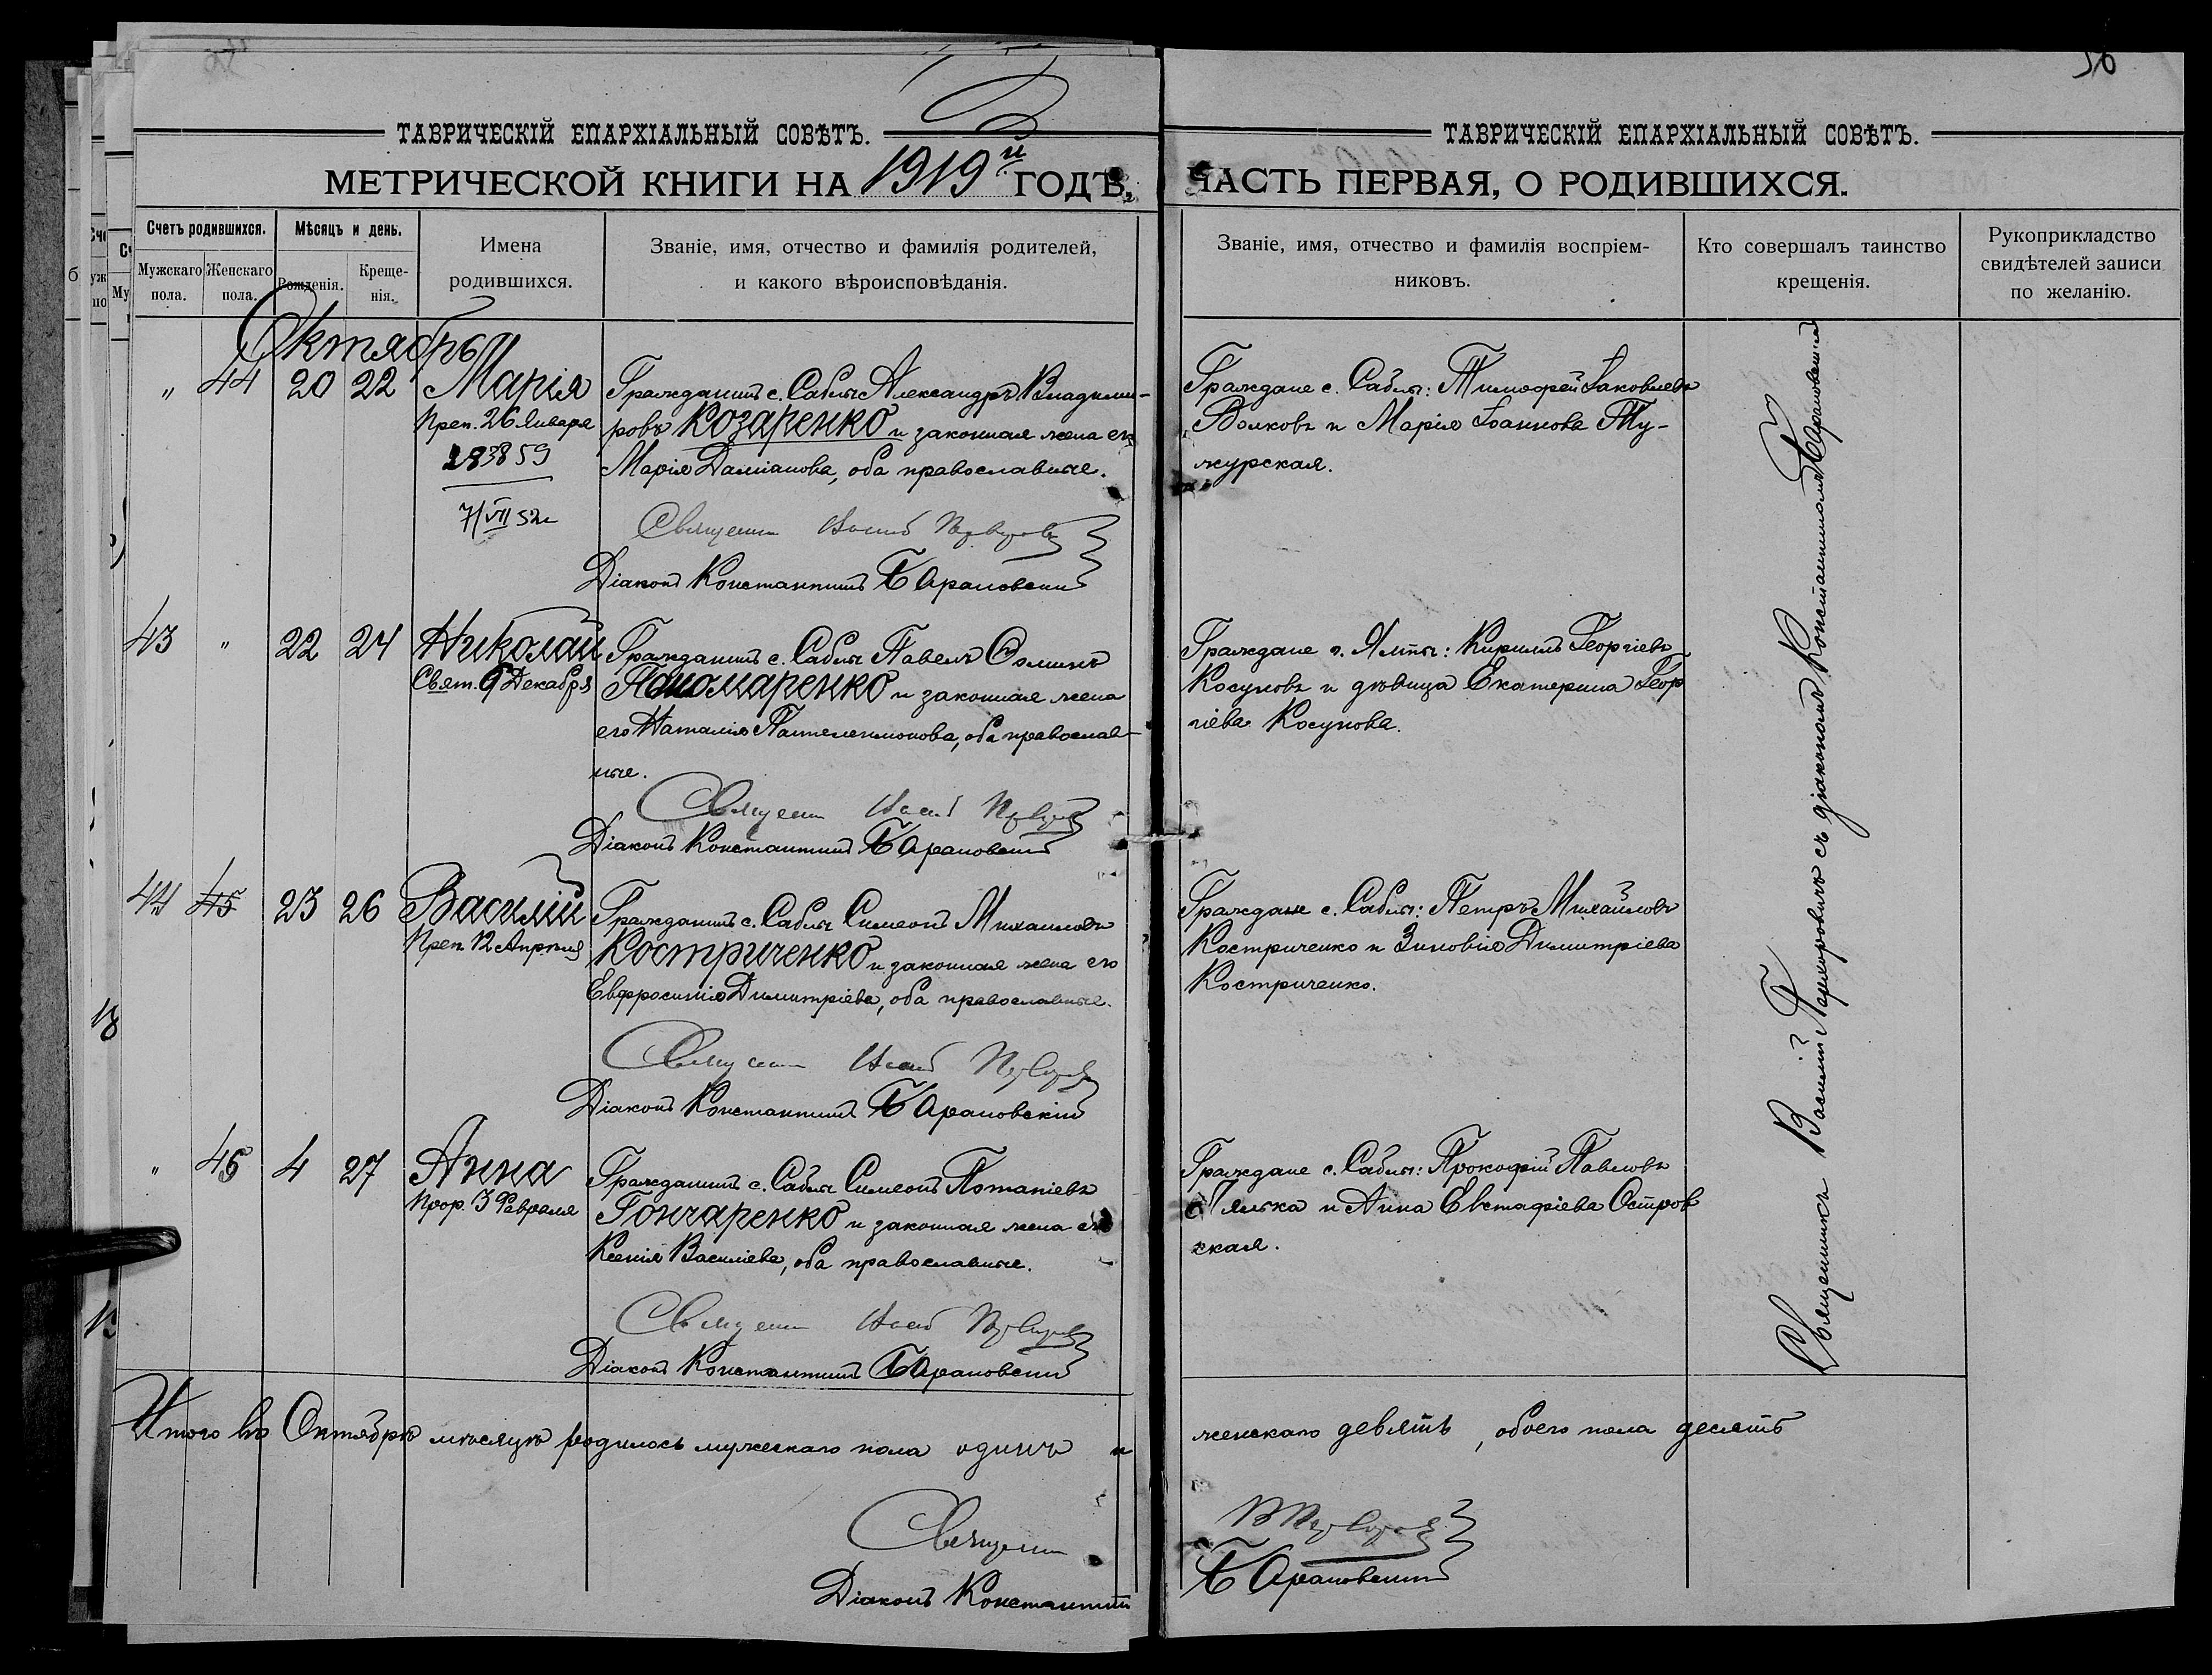 56
ТАВРИЧЕСКІЙ ЕПАРХІАЛЬНЫЙ СОВѢТЪ.
МЕТРИЧЕСКОЙ КНИГИ НА 1919й ГОДЪ,
Счетъ родившихся.
Мужскаго пола.
Женскаго пола.
Мѣсяцъ и день.
Рожденія.
Крещенія.
Имена
родившихся.
Званіе, имя, отчество и фамилія родителей,
и какого вѣроисповѣданія.
Октябрь
" 44 20 22 Марія
Преп. 26 Января
283859
7/VII 52г
Гражданинъ с. Саблы Александръ Владими-
ровъ Козаренко и законная жена его
Марія Даміанова, оба православные.
Священ
Діаконъ Константинъ Барановскій
43 " 22 24 Николай
Свят. 6 Декабря
Гражданинъ с. Саблы Павелъ Ѳоминъ
Пономаренко и законная жена
его Наталія Пантелеимонова, оба православ-
ные.
Священ
Діаконъ Константинъ Барановскій
44 45 23 26 Василій
Преп. 12 Апрѣля
Гражданинъ с. Саблы Симеонъ Михаиловъ
Костриченко и законная жена его
Евфросинія Димитріева, оба православные.
Священ
Діаконъ Константинъ Барановскій
" 45 4 27 Анна
Прор. 3 Февраля
Гражданинъ с. Саблы Симеонъ Потапіевъ
Гончаренко и законная жена его
Ксенія Василіева, оба православные.
Священ
Діаконъ Константинъ Барановскій
Итого въ Октябрѣ мѣсяцѣ родилось мужескаго пола одинъ и
Священ
Діаконъ Константинъ
ТАВРИЧЕСКІЙ ЕПАРХІАЛЬНЫЙ СОВѢТЪ.
ЧАСТЬ ПЕРВАЯ, О РОДИВШИХСЯ.
Званіе, имя, отчество и фамилія воспріем-
никовъ.
Кто совершалъ таинство
крещенія.
Рукоприкладство
свидѣтелей записи
по желанію.
Граждане с. Саблы: Тимофей Іаковлевъ
Волковъ и Марія Іоаннова Ту-
журская.
Граждане г. Ялты: Кириллъ Георгіевъ
Косуновъ и дѣвица Екатерина Геор
гіева Косунова.
Граждане с. Саблы: Петръ Михайловъ
Костриченко и Зиновія Димитріева
Костриченко.
Граждане с. Саблы: Прокофій Павловъ
и Анна Евстафіева Остров
ская.
Священникъ Василій съ діакономъ Константиномъ Барановскимъ
женскаго девять, обоего пола десять
Барановскій